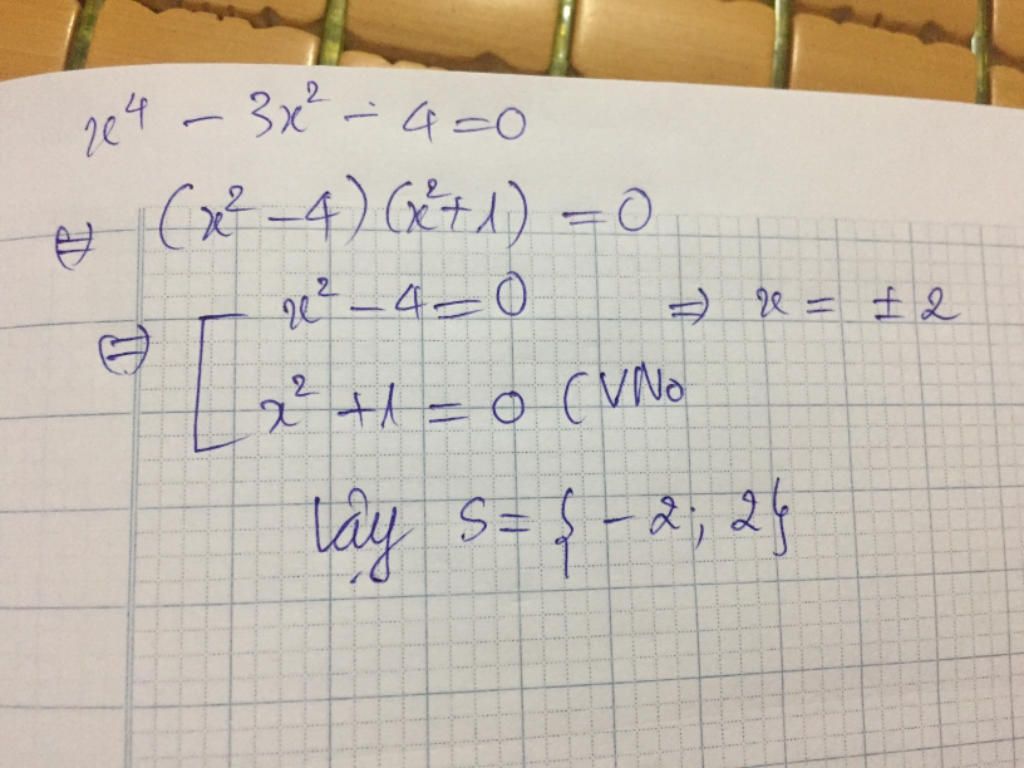 x⁴ - 3x² - 4 = 0
⇔ (x² - 4)(x² + 1) = 0
⇔ [ x² - 4 = 0 ⇒ x = ± 2
x² + 1 = 0 (VNo
Vậy S = { - 2; 2}